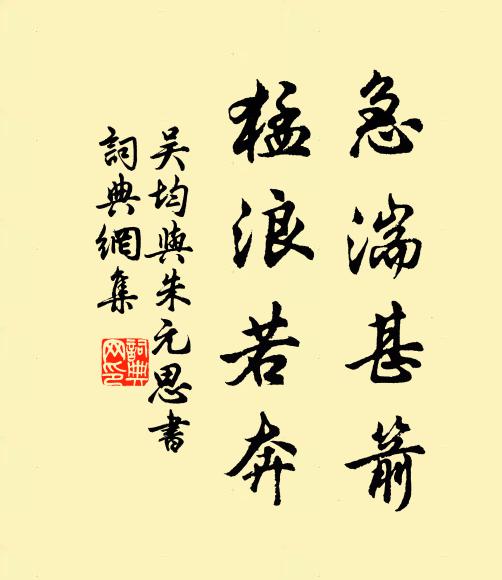 急湍甚箭
猛浪若奔
吴均與朱元思書
詞典網集
詞典網印